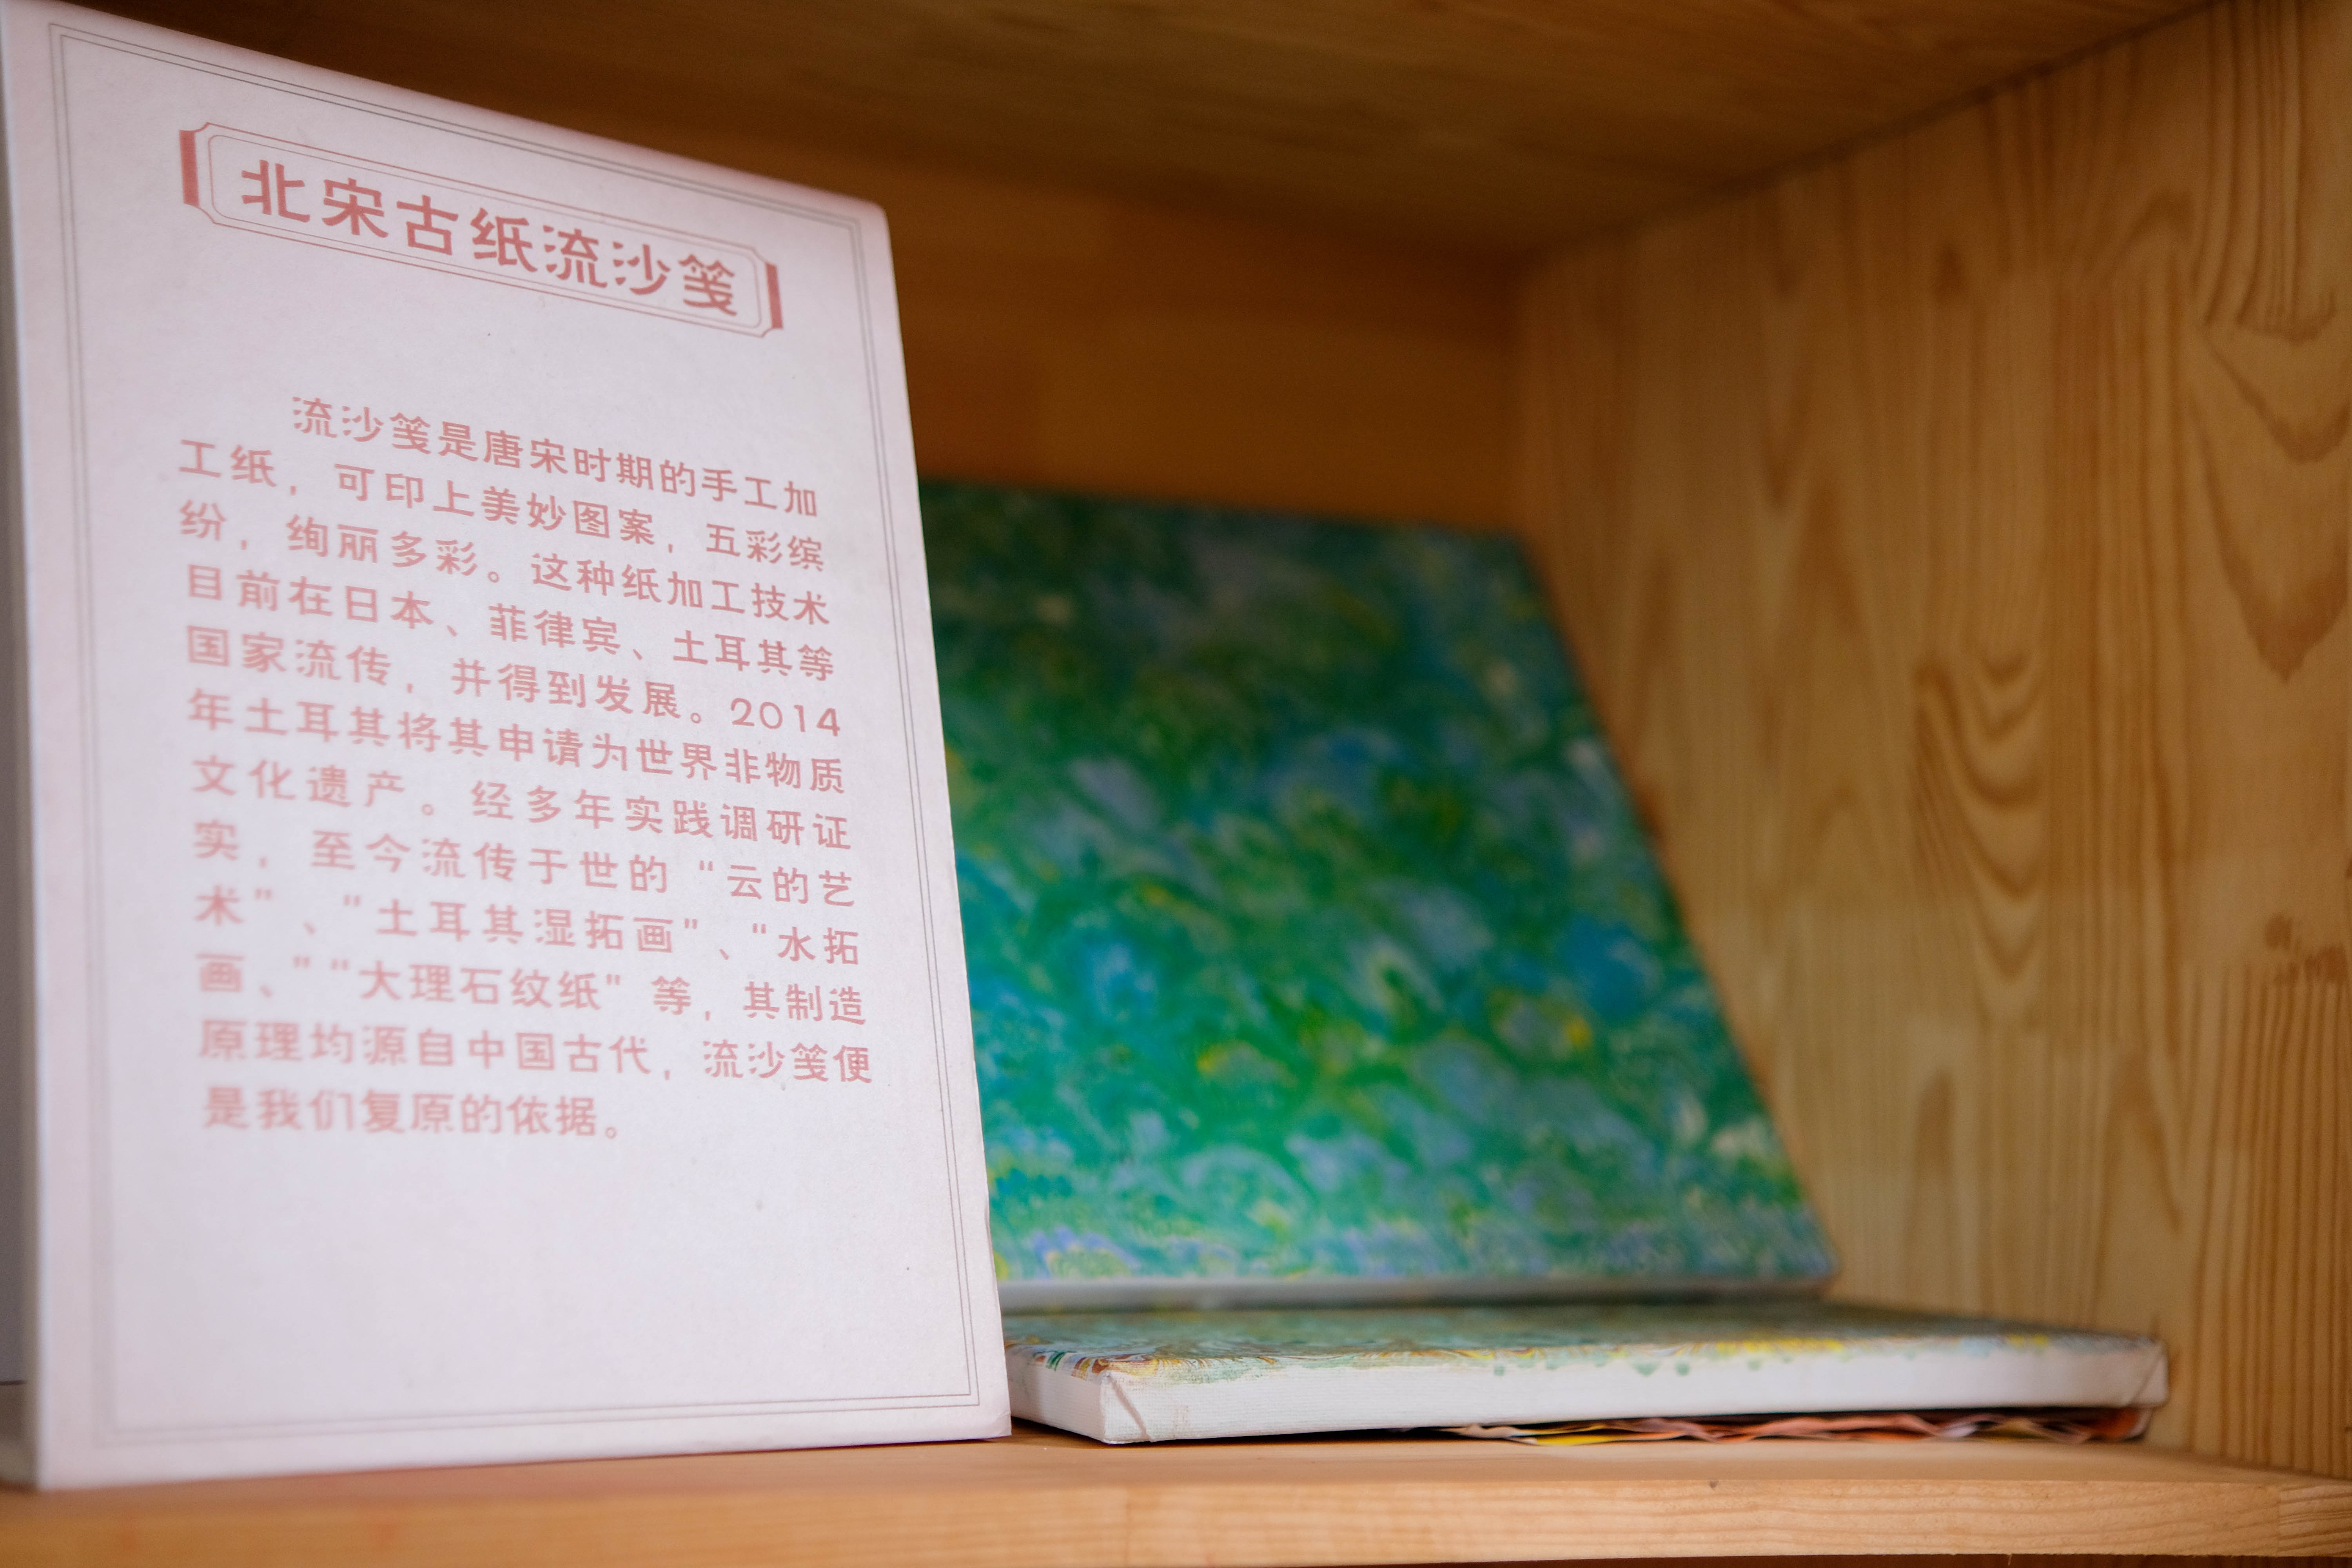 北宋古纸流沙笺
流沙笺是唐宋时期的手工加
工纸，可印上美妙图案，五彩缤
纷，绚丽多彩。这种纸加工技术
目前在日本、菲律宾、土耳其等
国家流传，并得到发展。2014
年土耳其将其申请为世界非物质
文化遗产。经多年实践调研证
实，至今流传于世的“云的艺
术”、“土耳其湿拓画”、“水拓
画、”“大理石纹纸”等，其制造
原理均源自中国古代，流沙笺便
是我们复原的依据。